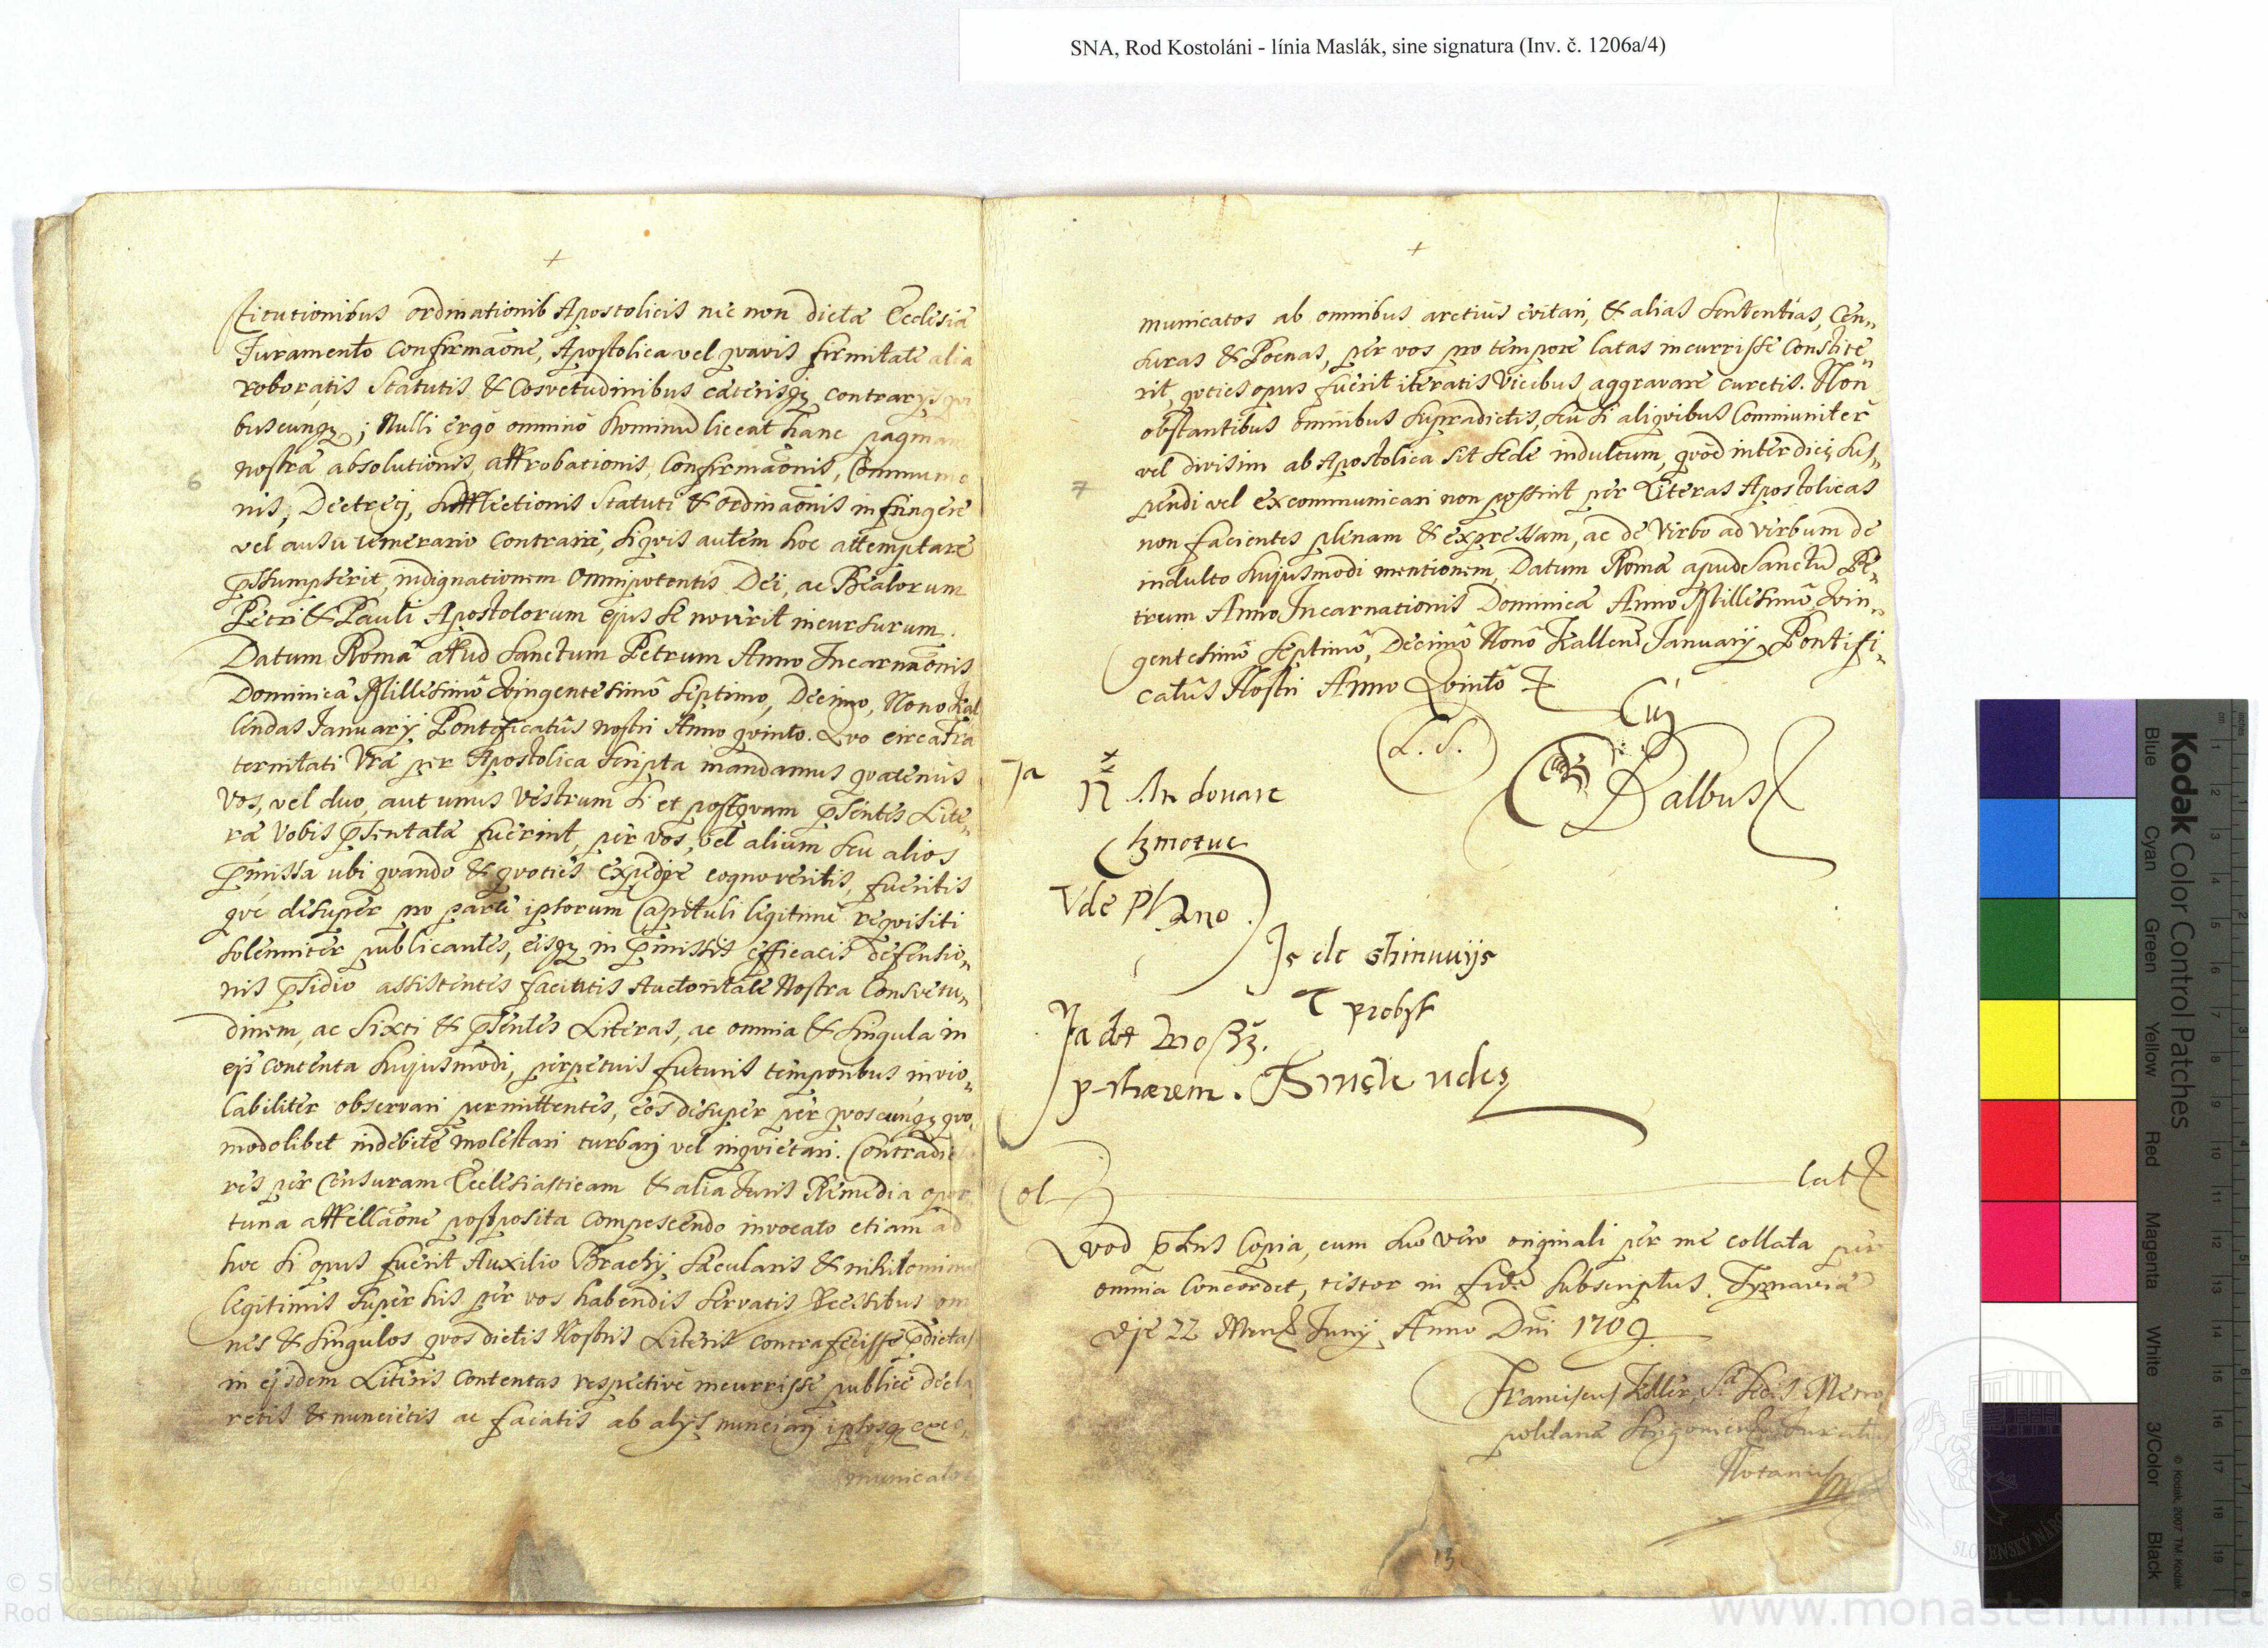 SNA, Rod Kostoláni - línia Maslák, sine signatura (Inv. č. 1206a/4)
stitutionibus ordinationib Apostolicis nec non dictæ Ecclesiæ
Juramento Confirmaōne, Apostolica vel qvavis firmitate alia
roboratis Statutis & Cosvetudinibus cæterisqz contrarijs qvi
buscunqz; Nulli ergò omninò hominũ liceat hanc paginam
nostrã absolutionis, approbationis, Confirmaōnis, Communio
nis, Decreti, Statuti & Ordinaōnis infringere
vel ausu temerario Contraire, si qvis autem hoc attemptare
p̄sumpserit, indignationem Omnipotentis Dei, ac Beatorum
Petri & Pauli Apostolorum ejus se noverit incursurum.
Datum Romæ apud Sanctum Petrum Anno Incarnaōnis
Dominicæ Millesimô Qvingentesimô Septimo, Decimo, Nono Kal
lendas Januarij Pontificatûs nostri Anno qvinto. Qvo circa Fra
ternitati Vræ per Apostolica scripta mandamus qvatenùs
Vos, vel duo, aut unus Vestrum si et postqvam p̄sentes Lite„
ræ Vobis p̄sentatæ fuerint, per vos, vel alium seu alios
p̄missa ubi qvando & qvoties expedire cognoveritis, fueritis
qve desuper pro parte ipsorum Capituli legitimè reqvisiti
solenniter publicantes, eisqz in p̄missis efficacis defensio„
nis p̄sidio assistentes faciatis Auctoritate Nostra Consvetu„
dinem, ac Sixti & p̄sentes Literas, ac omnia & singula in
eis contenta hujusmodi, perpetuis futuris temporibus invio„
labiliter observari permittentes, eos desuper per qvoscunqz qvo„
modolibet indebitè molestari turbari vel inqvietari. Contradic
res per Censuram Ecclesiasticam & alia Juris Remedia opor„
tuna appellaōne postposita compescendo invocato etiam ad
hoc si opus fuerit Auxilio Brachij Sæcularis & nihilominus
legitimis super his per vos habendis servatis processibus om
nes & singulos qvos dictis Nostris Literis contrafecisse p̄dictas
in ejsdem Literis Contentas respective incurrisse publicè decla
retis & nuncietis ac faciatis ab alijs nunciari ipsosqz exco„
municatos
6
7
municatos ab omnibus arctiùs evitari, & alias Sententias, Cen„
suras & Poenas, per vos pro tempore latas incurrisse Constite„
rit, qvoties opus fuerit iteratis Vicibus aggravare curetis. Non
obstantibus omnibus supradictis, seu si aliqvibus Communiter
vel divisim ab Apostolica sit sede indultum, qvòd interdici, sus„
pendi vel excommunicari non possint per Literas Apostolicas
non facientes plenam & expressam, ac de Verbo ad verbum de
indulto hujusmodi mentionem, Datum Romæ apud Sanctũ Pe„
trum Anno Incarnationis Dominicæ Anno Millesimô Qvin„
gentesimô Septimô, Decimô Nonô Kallend Januarij, Pontifi„
catûs Nostri Anno Qvintô
L. S.
Balbus
N. An douane
V de Phano
Ja
probst
Col
lat
Qvod p̄sens Copia, cum suo vero originali per me collata per
omnia Concordet, testor in fide subscriptus. Tyrnaviæ
die 22 Mens Junij Anno Dñi 1709
Franciscus Keller, Sæ Sedis Metro„
politanæ Strigoniens Juratus
Notarius
13
Kodak Color Control Patches
Blue
Cyan
Green
Yellow
Red
Magenta
White
3/Color
Black
© Kodak, 2007 TM: Kodak
© Slovenský národný archív 2010
Rod Kostoláni - línia Maslák
www.monasterium.net